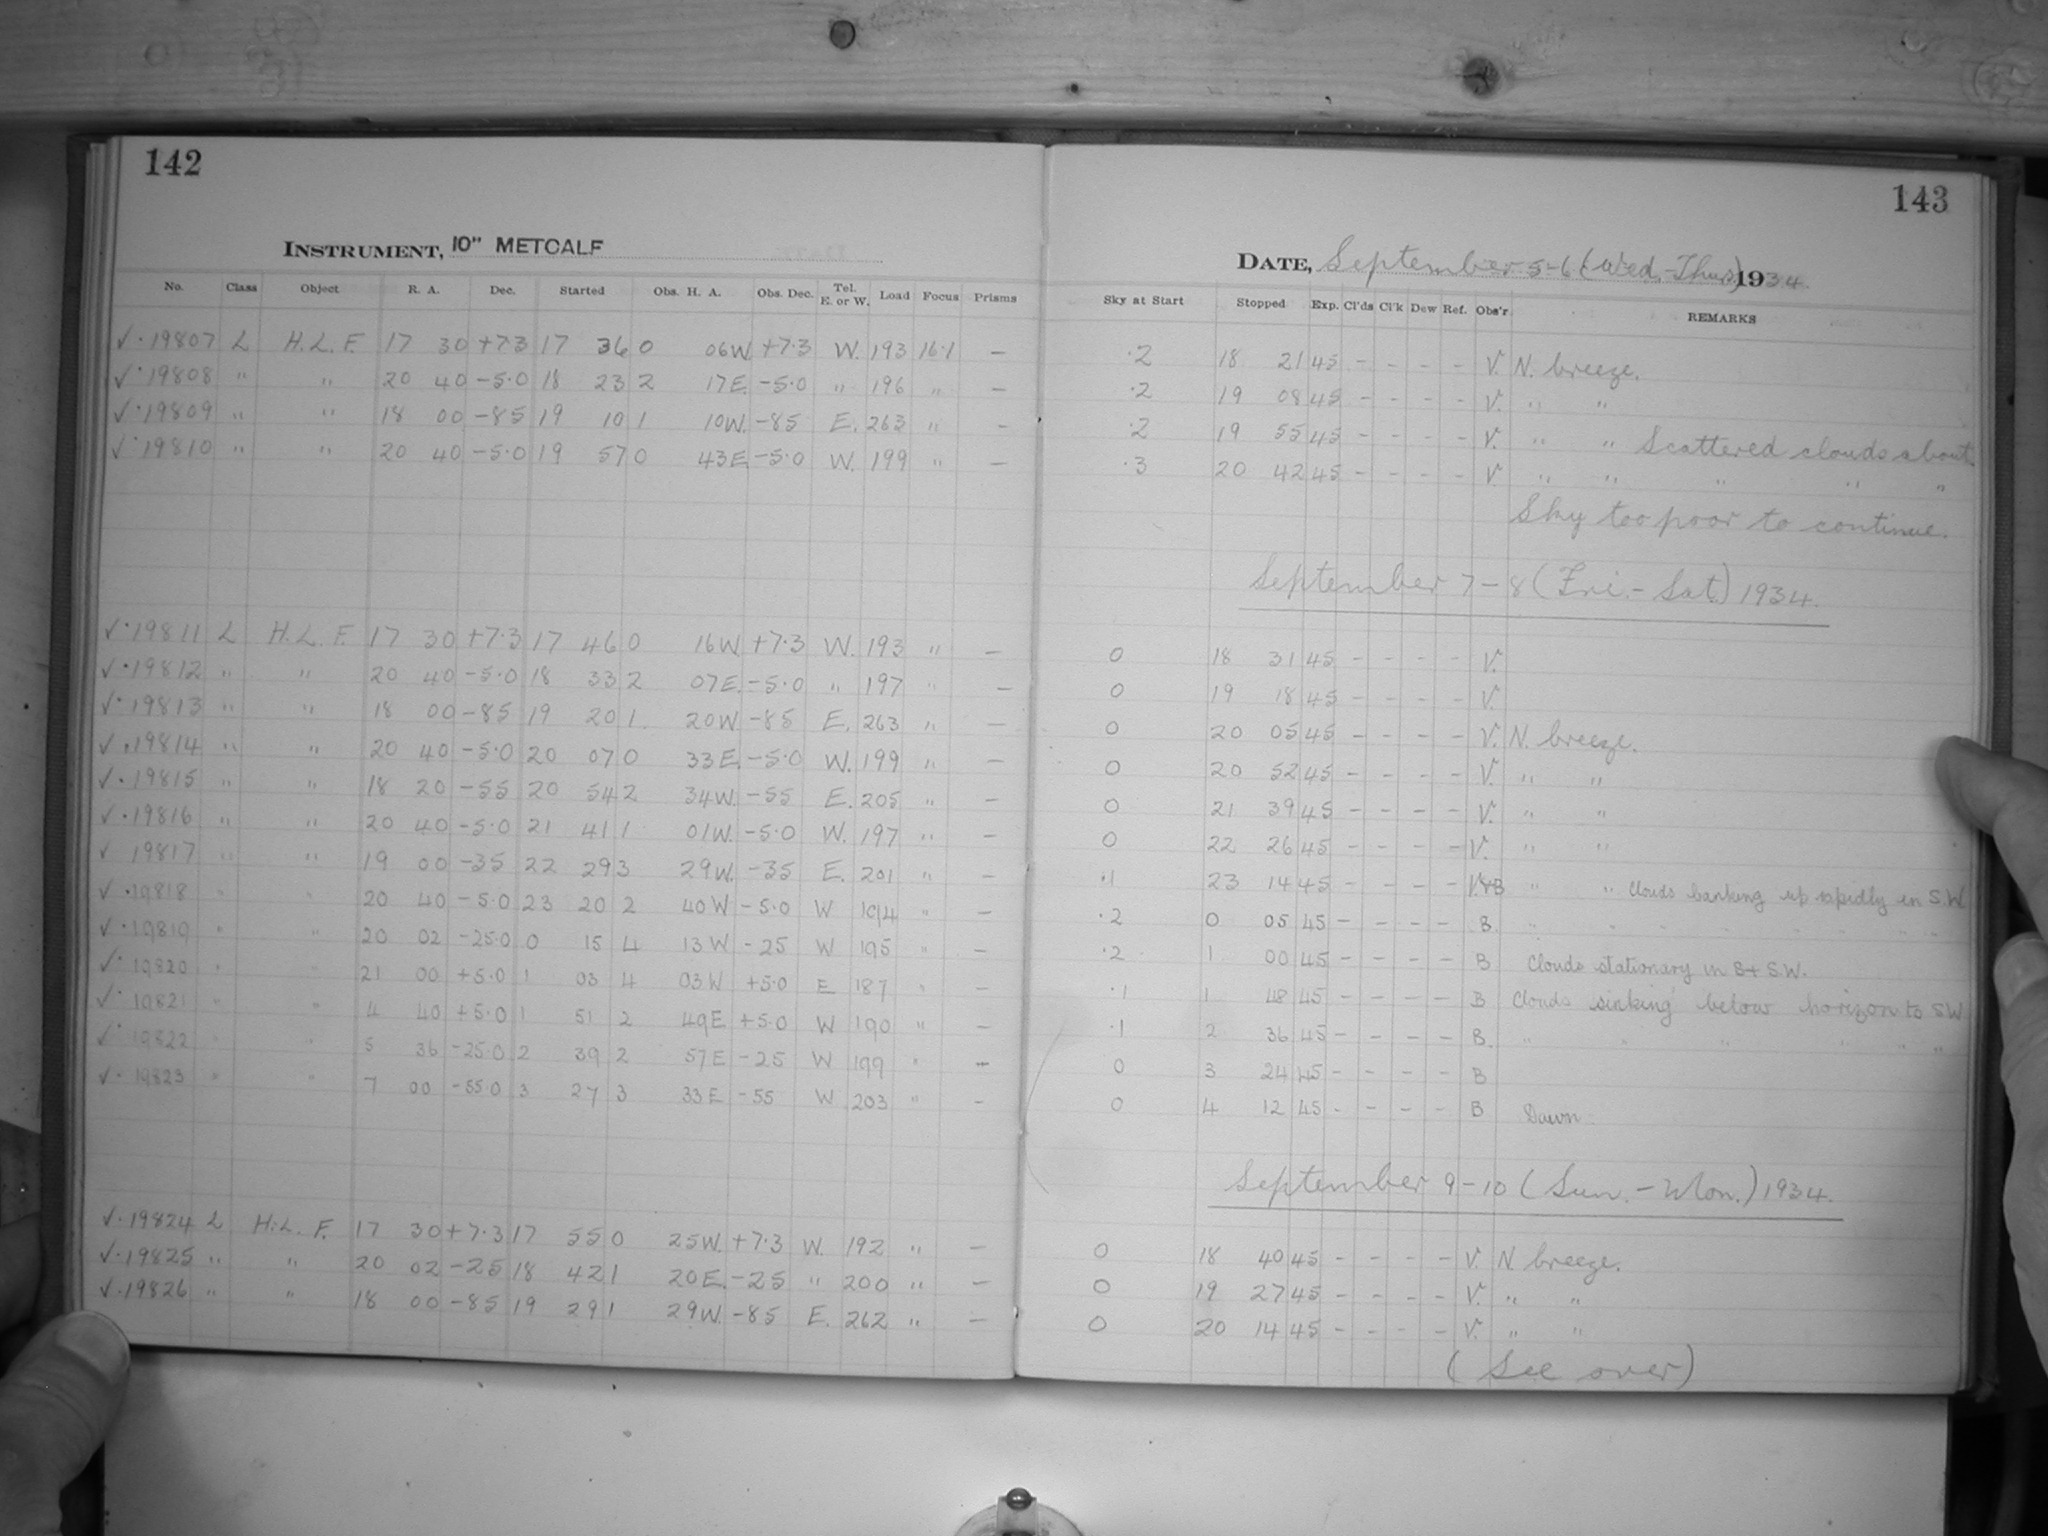 142
INSTRUMENT, 10" METCALF
No. Class Object R. A. Dec. Started Obs. H. A. Obs. Dec. Tel. E. or W. Load Focus Prisms
✓·19807 L H.L.F. 17 30 +7.3 17 36 0 06W. +7·3 W. 193 16·1 —
✓·19808 " " 20 40 -5·0 18 23 2 17E. -5·0 " 196 " —
✓·19809 " " 18 00 -85 19 10 1 10W. -85 E. 263 " —
✓·19810 " " 20 40 -5·0 19 57 0 43E. -5·0 W. 199 " —
✓·19811 L H.L.F. 17 30 +7·3 17 46 0 16W. +7·3 W. 193 " —
✓·19812 " " 20 40 -5·0 18 33 2 07E. -5·0 " 197 " —
✓·19813 " " 18 00 -85 19 20 1 20W -85 E. 263 " —
✓·19814 " " 20 40 -5·0 20 07 0 33E. -5·0 W. 199 " —
✓·19815 " " 18 20 -55 20 54 2 34W. -55 E. 205 " —
✓·19816 " " 20 40 -5·0 21 41 1 01W. -5·0 W. 197 " —
✓ 19817 " " 19 00 -35 22 29 3 29W. -35 E. 201 " —
✓·19818 " " 20 40 -5·0 23 20 2 40W -5·0 W 194 " —
✓·19819 " " 20 02 -25·0 0 15 4 13W -25 W 195 " —
✓·19820 " " 21 00 +5·0 1 03 4 03W +5·0 E 187 " —
✓·19821 " " 4 40 +5·0 1 51 2 49E +5·0 W 190 " —
✓·19822 " " 5 36 -25·0 2 39 2 57E -25 W 199 " —
✓·19823 " " 7 00 -55·0 3 27 3 33E -55 W 203 " —
✓·19824 L H.L.F. 17 30 +7·3 17 55 0 25W. +7·3 W. 192 " —
✓·19825 " " 20 02 -25 18 42 1 20E. -25 " 200 " —
✓·19826 " " 18 00 -85 19 29 1 29W. -85 E. 262 " —
143
DATE, September 5-6 (Wed.-Thurs) 1934.
Sky at Start Stopped Exp. Cl'ds Cl'k Dew Ref. Obs'r REMARKS
·2 18 21 45 - - - - V. N. breeze.
·2 19 08 45 - - - - V. " "
·2 19 55 45 - - - - V. " " Scattered clouds about
·3 20 42 45 - - - - V. " " " " "
Sky too poor to continue.
September 7-8 (Fri.-Sat.) 1934.
0 18 31 45 - - - - V.
0 19 18 45 - - - - V.
0 20 05 45 - - - - V. N. breeze.
0 20 52 45 - - - - V. " "
0 21 39 45 - - - - V. " "
0 22 26 45 - - - - V. " "
·1 23 14 45 - - - - V.&B " " Clouds banking up rapidly in S.W
·2 0 05 45 - - - - B " " " " " " " "
·2 1 00 45 - - - - B Clouds stationary in S+S.W.
·1 1 48 45 - - - - B Clouds sinking below horizon to SW
·1 2 36 45 - - - - B. " " " " " "
0 3 24 45 - - - - B
0 4 12 45 - - - - B Dawn
September 9-10 (Sun.-Mon.) 1934.
0 18 40 45 - - - - V. N. breeze.
0 19 27 45 - - - - V. " "
0 20 14 45 - - - - V. " "
(See over)